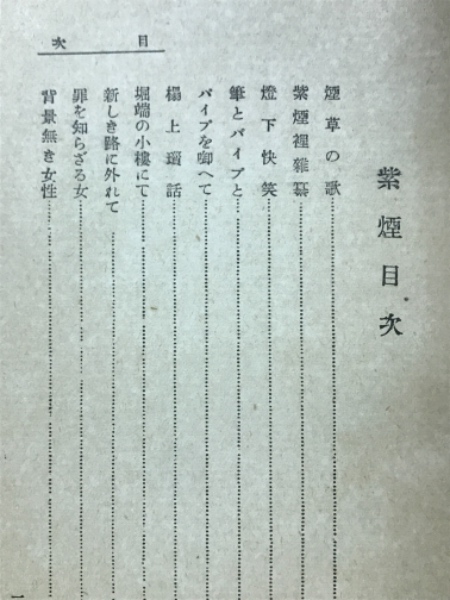 目次
紫煙目次
煙草の歌
紫煙裡雜纂
燈下快笑
筆とパイプと
パイプを啣へて
榻上瑣話
堀端の小樓にて
新しき路に外れて
罪を知らざる女
背景無き女性
一